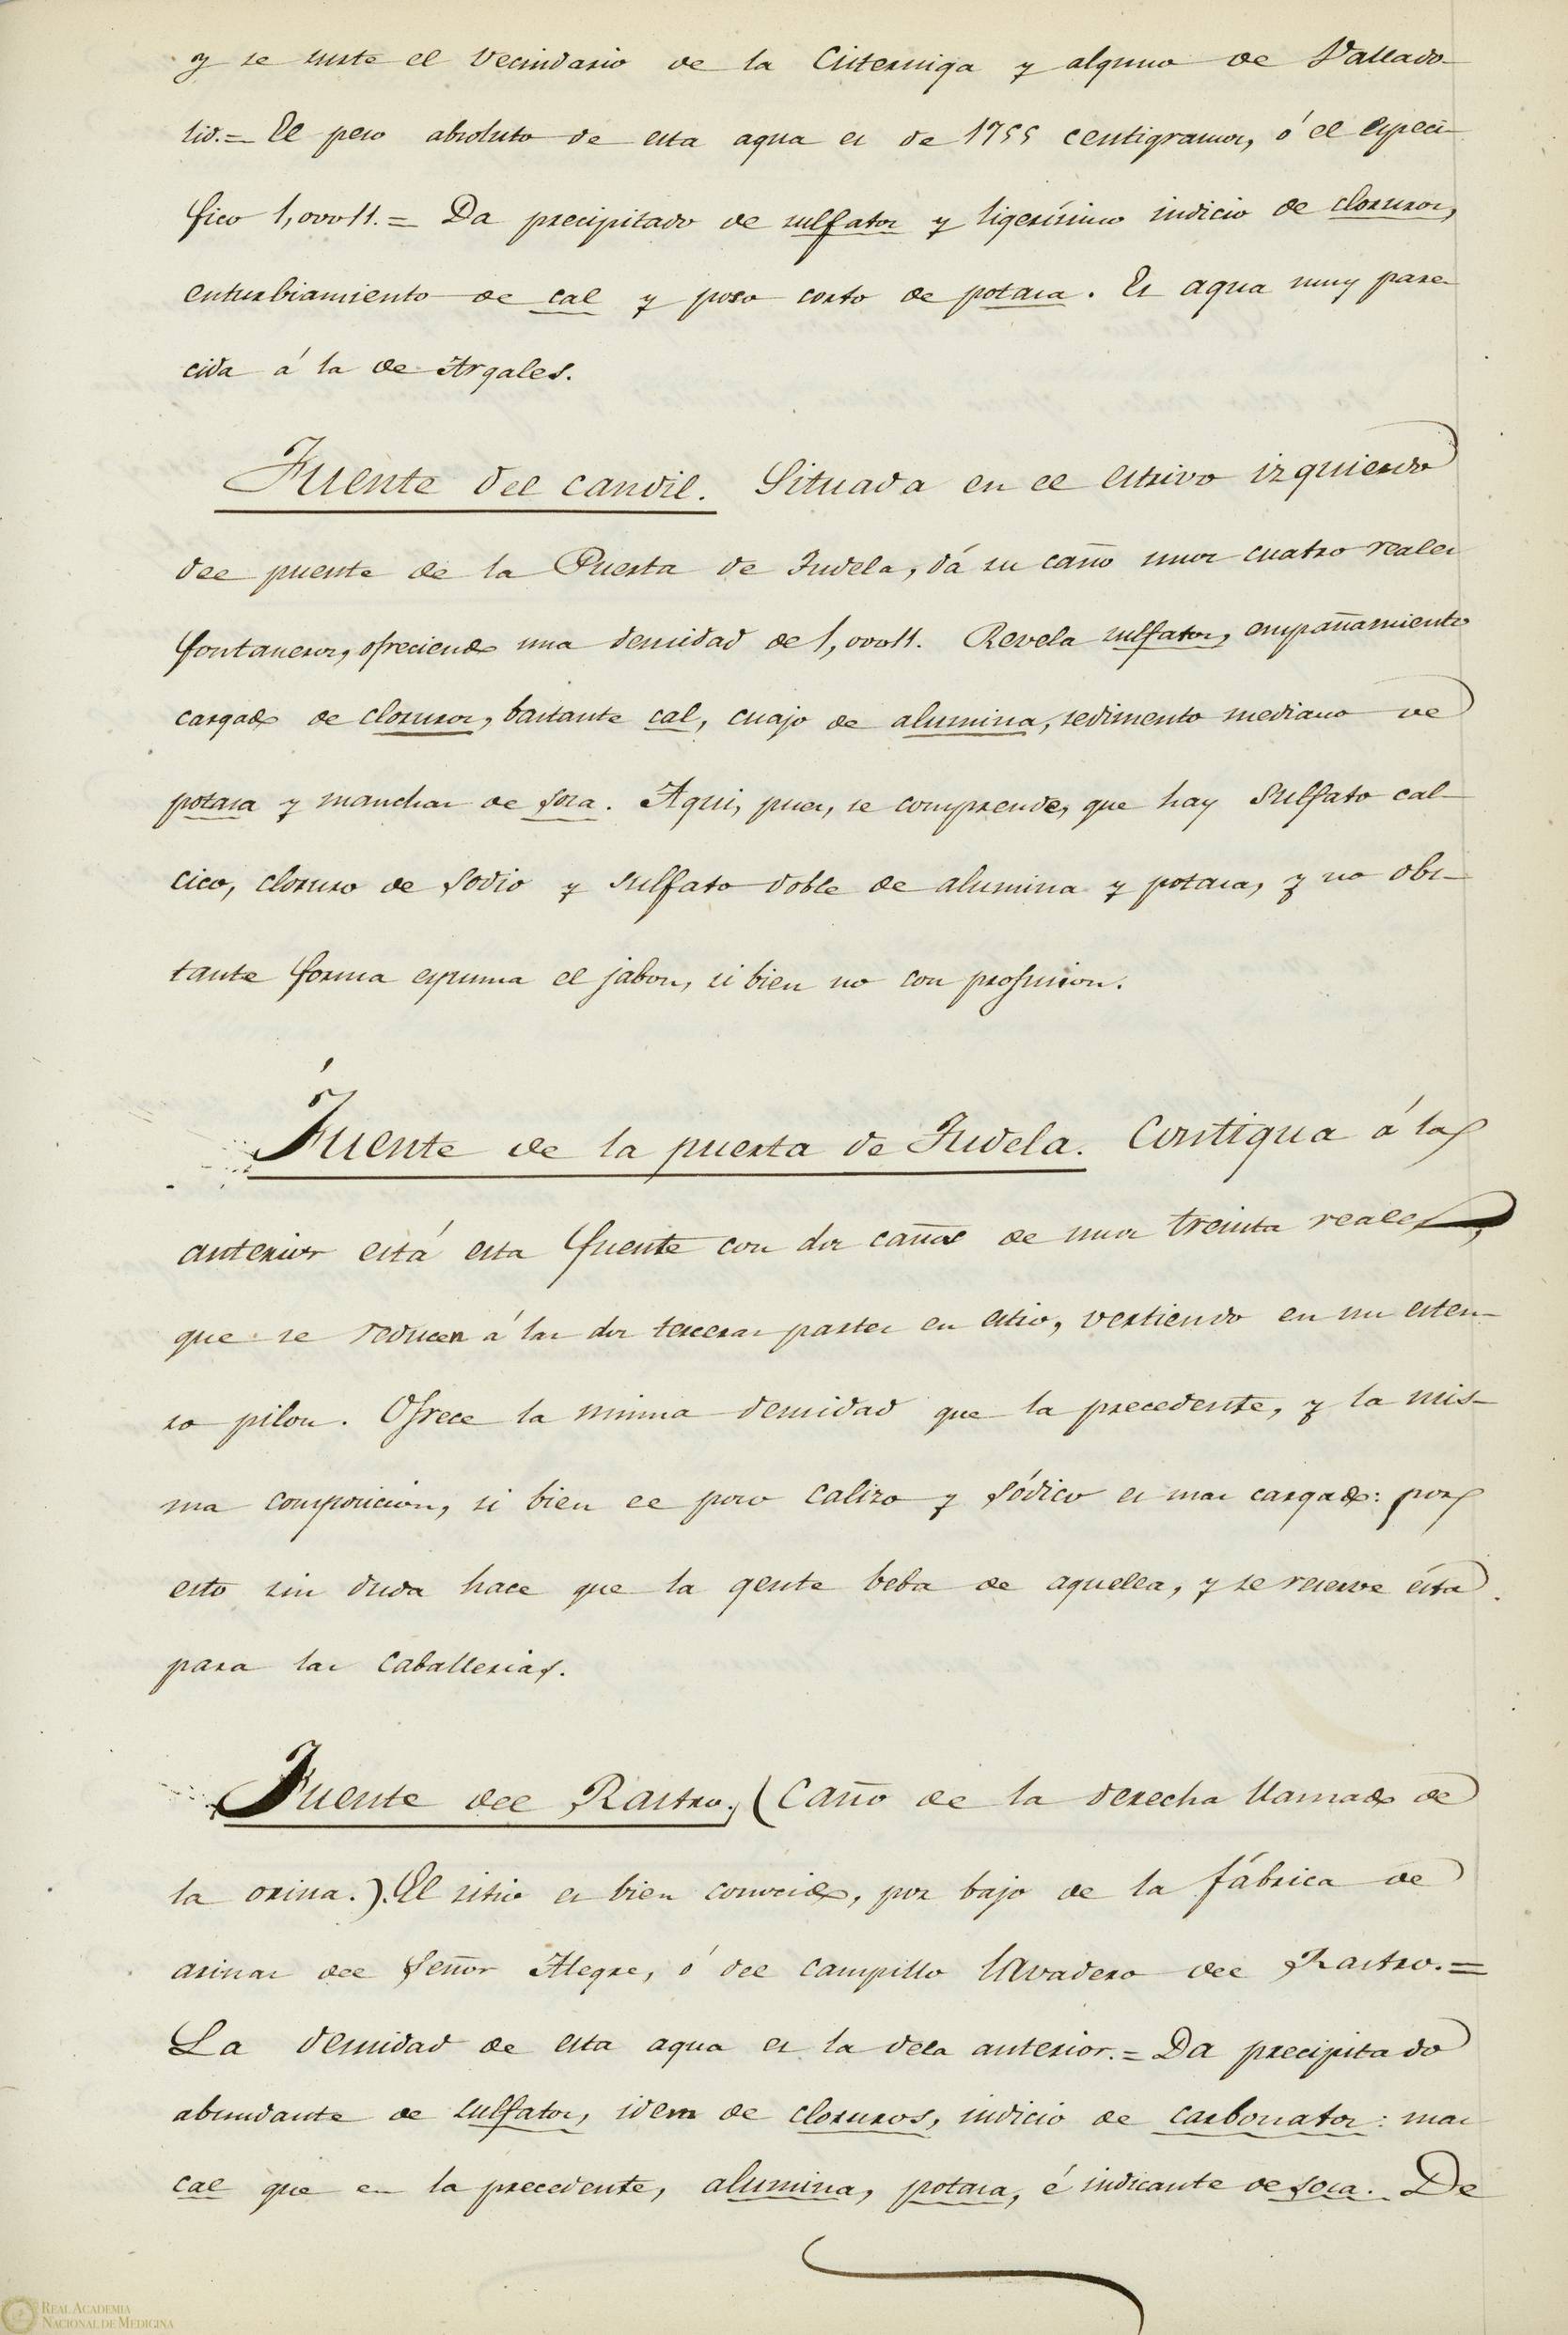 y se surte el vecindario de la Cisterniga y alguno de Vallado-
lid.= El peso absoluto de esta agua es de 1755 centigramos, ó el especi-
fico 1,00011.= Da precipitado de sulfatos y ligerísimo indicio de cloruros,
enturbiamiento de cal y poso corto de potasa. Es agua muy pare-
cida á la de Argales.
Fuente del candil. Situada en el estrivo izquierdo
del puente de la Puerta de Tudela, dá su caño unos cuatro reales
fontaneros, ofreciendo una densidad de 1,00011. Revela sulfatos, empañamiento
cargado de cloruros, bastante cal, cuajo de alumina, sedimento mediano de
potasa y manchas de sosa. Aqui, pues, se comprende, que hay sulfato cal-
cico, cloruro de sodio y sulfato doble de alumina y potasa, y no obs-
tante forma espuma el jabon, si bien no con profusion.
Fuente de la puerta de Tudela. Contigua á la
anterior está esta fuente con dos caños de unos treinta reales,
que se reducen á las dos terceras partes en estio, vertiendo en un esten-
so pilon. Ofrece la misma densidad que la precedente, y la mis-
ma composicion, si bien el poso calizo y sódico es mas cargado: por
esto sin duda hace que la gente beba de aquella, y se reserve ésta
para las caballerias.
Fuente del Rastro. (Caño de la derecha llamado de
la orina.). El sitio es bien conocido, por bajo de la fábrica de
arinas del Señor Alegre, ó del campillo lavadero del Rastro.=
La densidad de esta agua es la dela anterior.= Da precipitado
abundante de sulfatos, idem de cloruros, indicio de carbonatos: mas
cal que en la precedente, alumina, potasa, é indicante de sosa. De
REAL ACADEMIA
NACIONAL DE MEDICINA